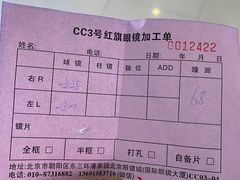 CC3号红旗眼镜加工单
姓名: 电话: 年 月 日
0012422
球镜 柱镜 轴位 ADD 瞳距
右R -2.25
左L -2.00 68
镜片
全框 半框 打孔 自备片
地址:北京市朝阳区东三环潘家园北京眼镜城(国际眼镜大厦)CC03-04
电话:010-87316882 13691583710(微信